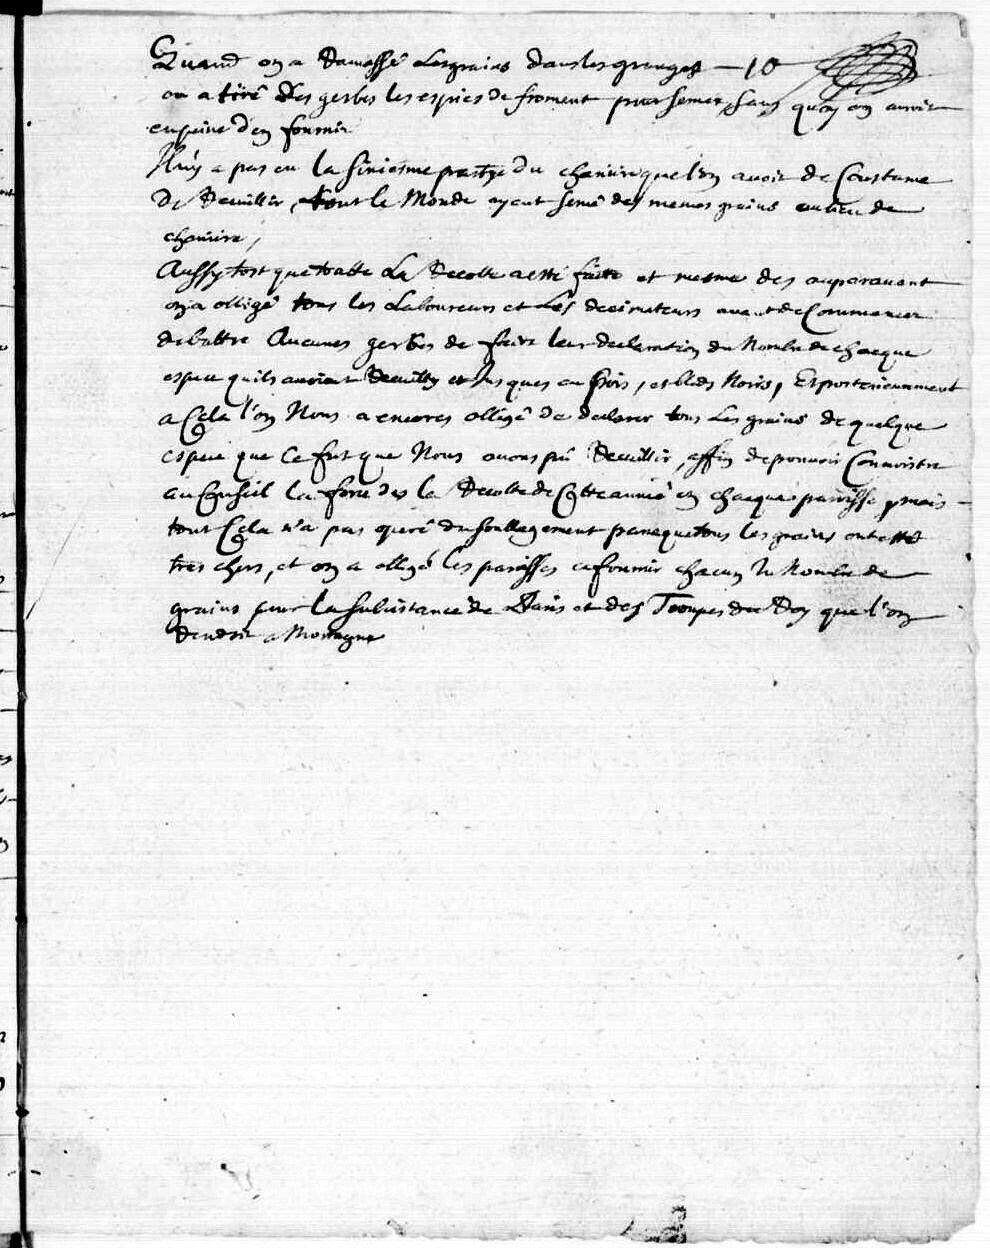 Quand on a Ramassé les grains dans les granges — 10
on a tiré Des gerbes les espies de froment pour semer, sans quoy on auroit
eu peine d'en fournir
Il n'y a pas eu la sixiesme partye du chanvre que l'on avoit de Coustume
De Receuillir, tout le Monde ayent semé des menus grains au lieu de
chanvre,
Aussy tost que toutte La Recolte a esté faitte et mesme des auparavant
on a obligé tous les Laboureurs et Les decimateurs avant de Commencer
de battre Aucunes gerbes de faire leur declaration du Nombre de chacque
espece quils avoient Receuilly et Jusques au foin, et bleds Noirs, Et posterieurement
a Cela l'on Nous a encores obligé de declarer tous Les grains de quelque
espece que Ce fut que Nous avons pû Receuillir, affin de pouvoir Connoistre
au Conseil la force des la Recolte de Cette année en chacque parroisse, mais
tout Cela n'a pas operé du soullagement parceque tous les grains ont esté
tres chers, et on a obligé les paroisses a fournir chacun un Nombre de
grains pour la subsistance de Paris et des Troupes du Roy que l'on
Rendoit a Mortagne